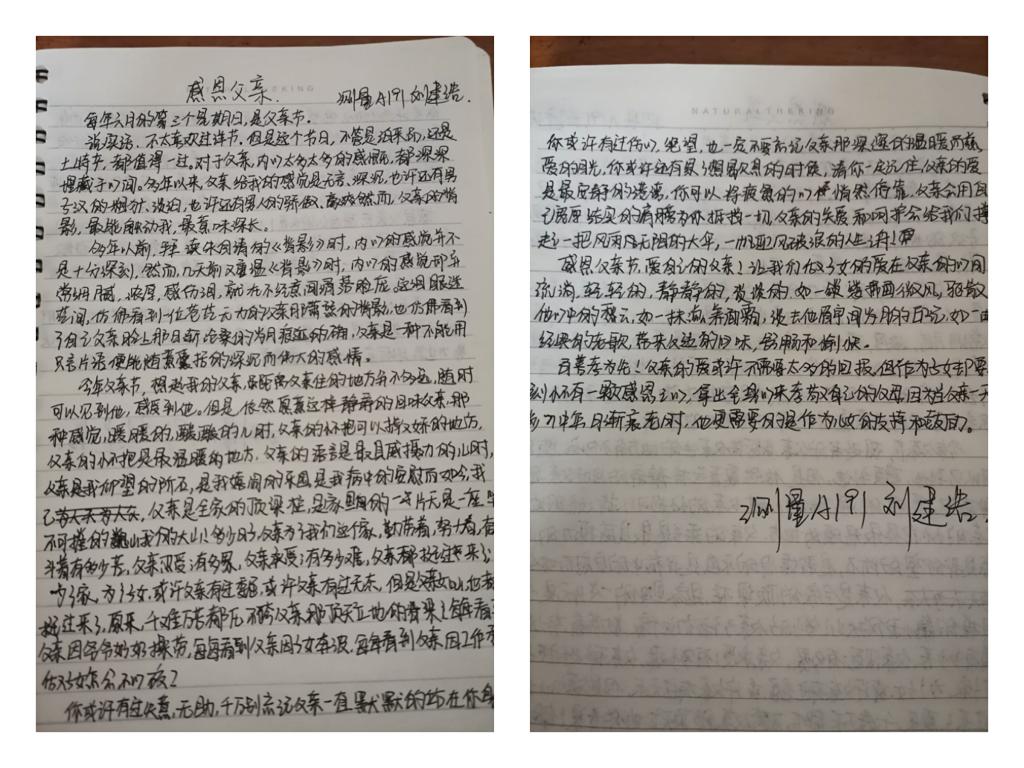 感恩父亲
测量A191 刘建浩.
每年六月的第三个星期日,是父亲节。
说实话,不太喜欢过洋节.但是这个节日,不管是泊来的,还是
土特产,都值得一过.对于父亲,内心太多太多的感慨,都深深
埋藏于心间.多年以来,父亲给我的感觉是无言、深沉,也许还有男
子汉的粗犷、淡泊,也许还有男人的骄傲、高疾然而,父亲的背
影,最能触动我,最意味深长。
多年以前,拜读朱自清的《背影》时,内心的感觉并不
是十分深刻,然而,几天前又重温《背影》时,内心的感觉却异
常细腻,浓厚,感伤泪,就在不经意间滴落脸庞.透细眼迷
茫间,仿佛看到一位苍茫无力的父亲那萧瑟的背影,也仿佛看到
了自己父亲脸上那日渐沧桑的岁月痕迹的确,父亲是一种不能用
只言片语便能归纳囊括的深沉而伟大的感情。
今年父亲节,想起我的父亲,虽距离父亲住的地方并不多远,随时
可以见到他,感受到他。但是,依然愿意这样静静的回味父亲那
种感觉,暖暖的,酸酸的儿时,父亲的怀抱可以撒女娇的地方,
父亲的怀抱是最温暖的地方.父亲的语言是最具威摄力的儿时,
父亲是我仰望的所在,是我嬉闹的乐园,是我病中的安慰而如今,我
父亲是全家的顶梁柱,是家里的一片天是一座牢
不可摧的我们的大山!多少的父亲为了我们这个家,勤劳着,努力着,奋
斗着有多少苦,父亲双受;有多累,父亲承受;有多少难,父亲都挺过来了;
为了家,为了子女,或许父亲有过委屈,或许父亲有过无奈.但是父亲如山,也都
挺过来了.原来,千难万苦都压不跨父亲那顶天立地的脊梁!每每看
父亲因爷爷奶奶操劳,每每看到父亲因子女奔波,每每看到父亲因工作
做子女怎么不心疼?
你或许有过失意,无助,千万别忘记父亲一直默默的站在你身
你或许有过伤心,绝望,也一定不要忘记父亲那深邃的温暖而慈
爱的目光,你或许还有累了想歇息的时候,请你一定记住,父亲的爱
是最安静的港湾,你可以将疲惫的心怀悄然停靠,父亲会用自
己宽厚结实的肩膀为你抵挡一切.父亲的关爱和呵护会给我们撑
起一把风雨无阻的大伞,一帆迎风破浪的人生
感恩父亲节,爱自己的父亲!让我们做子女的爱在父亲的心间
流淌,轻轻的,静静的,淡淡的,如一缕微风,驱散
他心中的愁云,如一抹淡去他眉间岁月的印记,如一曲
经典的老歌,带来久违的回味,舒畅和愉悦。
百善孝为先!父亲的爱或许不需要太多的回报,但作为子女却要
怀有一颗感恩之心,拿出全身心来孝敬自己的父母.因为当父亲一天
步入中年,日渐衰老时,他更需要的是作为儿女的支持和帮助。
测量A191 刘建浩.